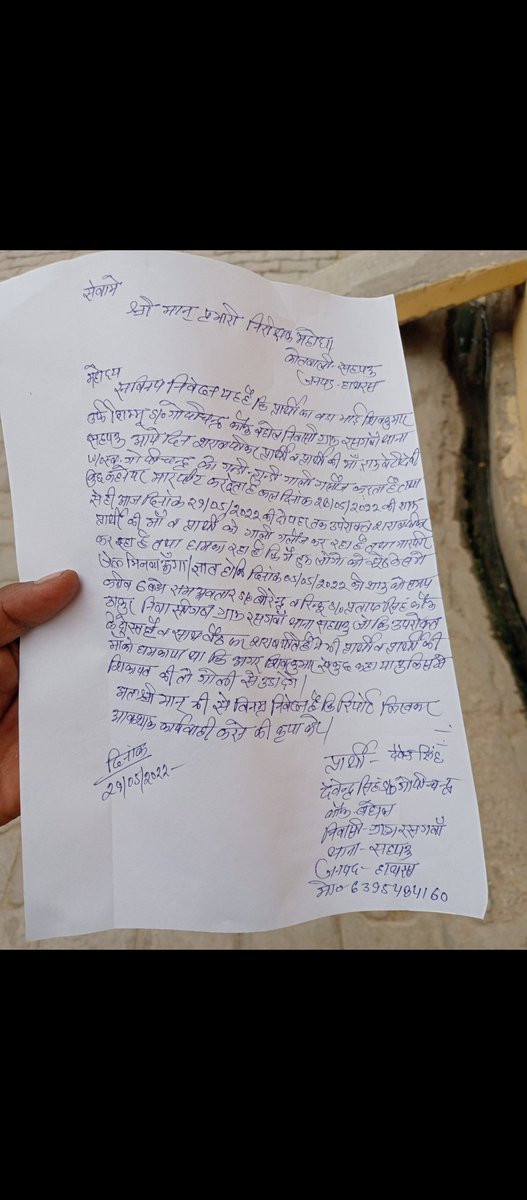 सेवामे
श्री मान् प्रभारी निरीक्षक महोदय
कोतवाली - सहपऊ
जनपद - हाथरस
महोदय
सविनय निवेदन यह है कि प्रार्थी का बडा भाई शिवकुमार
उर्फ शिम्भू S/o गोपीचन्द्र कौम बघेल निवासी ग्राम रसगवाँ थाना
सहपऊ आये दिन शराब पीकर प्रार्थी व प्रार्थी की माँ रामबेटी देवी
W/o स्व. गोपीचन्द्र को गन्दी-गन्दी गाली गलौज करता है तथा
कुछ कहने पर मारपीट कर देता है कल दिनांक 28/05/2022 की शाम
से ही आज दिनांक 29/05/2022 की दोपहर तक उपरोक्त शराब पीकर
प्रार्थी की माँ व प्रार्थी को गाली गलौज कर रहा है तथा मारपीट
कर रहा है तथा धमका रहा है कि मैं तुम लोगो को झूठे केस मे
जेल भिजवाऊँगा। ज्ञात हो कि दिनांक 05/2022 को शाम को समय
करीब 6 बजे राम अवतार S/o वीरेन्द्र व रिन्कू S/o प्रताप सिंह कौम
ठाकुर निवासीगण ग्राम रसगवाँ थाना सहपऊ जो कि उपरोक्त
के दोस्त हैं व साथ बैठ कर शराब पीते है ने भी प्रार्थी व प्रार्थी की
माँ को धमकाया था कि अगर शिवकुमार से कुछ कहा या पुलिस मे
शिकायत की तो गोली से उडा देगे।
अतः श्री मान् जी से विनम्र निवेदन है कि रिपोर्ट लिखकर
आवश्यक कार्यवाही करने की कृपा करें।
दिनांक
29/05/2022
प्रार्थी - देवेन्द्र सिंह
देवेन्द्र सिंह S/o गोपीचन्द्र
कौम बघेल
निवासी - ग्राम रसगवाँ
थाना - सहपऊ
जनपद - हाथरस
मो०- 6395484160